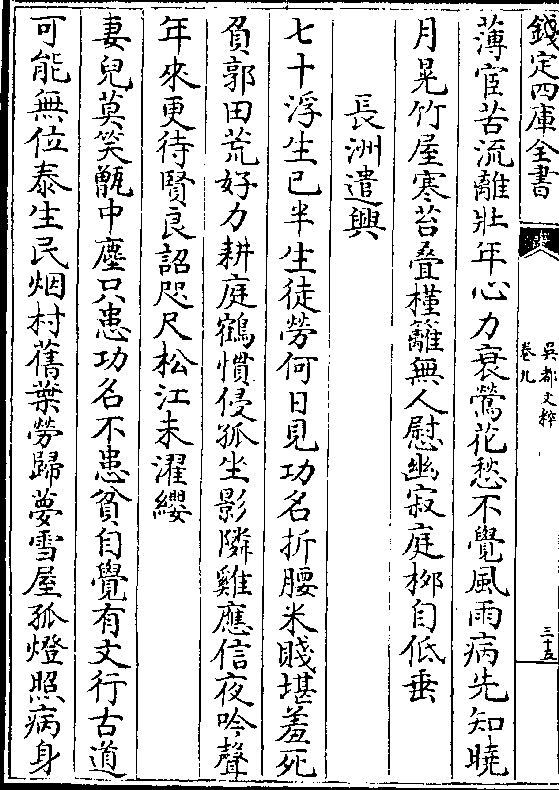 欽定四庫全書
吳都文粹
卷九
三十五
薄宦苦流離壯年心力衰鶯花愁不覺風雨病先知曉
月晃竹屋寒苔疊槿籬無人慰幽寂庭柳自低垂
長洲遣興
七十浮生已半生徒勞何日見功名折腰米賤堪羞死
負郭田荒好力耕庭鶴慣侵孤坐影隣雞應信夜吟聲
年來更待賢良詔咫尺松江未濯纓
妻兒莫笑甑中塵只患功名不患貧自覺有文行古道
可能無位泰生民烟村舊葉勞歸夢雪屋孤燈照病身